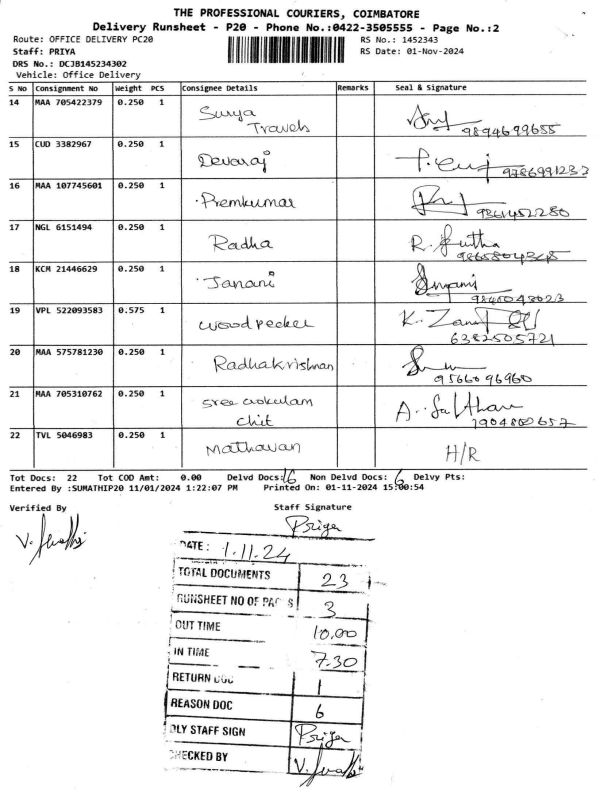 THE PROFESSIONAL COURIERS, COIMBATORE
Delivery Runsheet - P20 - Phone No.:0422-3505555 - Page No.:2
Route: OFFICE DELIVERY PC20 RS No.: 1452343
Staff: PRIYA RS Date: 01-Nov-2024
DRS No.: DCJB145234302
Vehicle: Office Delivery
S No Consignment No Weight PCS Consignee Details Remarks Seal & Signature
14 MAA 705422379 0.250 1 Surya
Travels 9894699655
15 CUD 3382967 0.250 1 Devaraj 9786991233
16 MAA 107745601 0.250 1 Premkumar 9361452280
17 NGL 6151494 0.250 1 Radha R.
18 KCM 21446629 0.250 1 Janani
19 VPL 522093583 0.575 1 woodpecker K.
6382505721
20 MAA 575781230 0.250 1 Radhakrishnan
9566096960
21 MAA 705310762 0.250 1 sree gokulam
chit 7904800657
22 TVL 5046983 0.250 1 Mathavan H/R
Tot Docs: 22 Tot COD Amt: 0.00 Delvd Docs: 16 Non Delvd Docs: 6 Delvy Pts:
Entered By :SUMATHIP20 11/01/2024 1:22:07 PM Printed On: 01-11-2024 15:00:54
Verified By Staff Signature
Priya
DATE : 1.11.24
TOTAL DOCUMENTS 23
RUNSHEET NO OF PAGES 3
OUT TIME 10.00
IN TIME 7.30
RETURN DOC 1
REASON DOC 6
DLY STAFF SIGN Priya
CHECKED BY